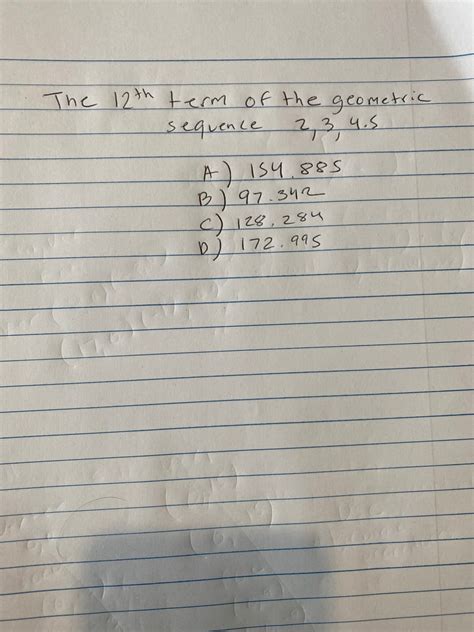 The 12th term of the geometric
sequence 2, 3, 4.5
A) 154.885
B) 97.342
C) 128.284
D) 172.995